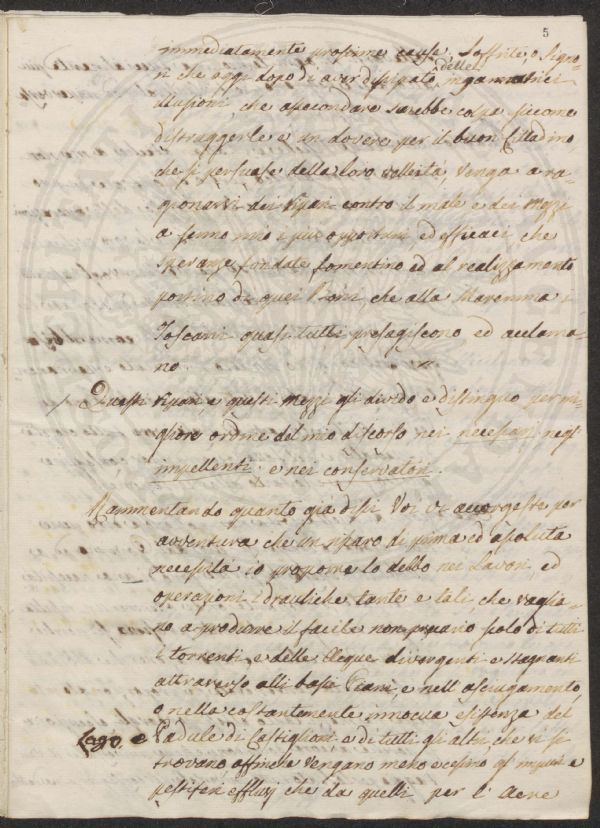 5
immediatamente prossime cause. Soffrite, o Signo-
ri che oggi dopo di aver dissipato delle ingannatrici
illusioni, che asecondare sarebbe colpa siccome
distruggerle è un dovere per il buon Cittadino,
che si persuase della loro vellità, venga a ra-
gionarvi dei ripari contro il male e dei mezzi
a senno mio i più opportuni, ed efficaci che
speranze fondate fomentino ed al realizzamento
portino di quei Beni, che alla Maremma i
Toscani quasi tutti presagiscono ed acclama-
no.
Questi ripari, e questi mezzi gli divido e distinguo per mi-
gliore ordine del mio discorso nei necessarj negl'
impellenti: e nei conservatori.
Rammentando quanto già dissi Voi vi accorgeste per
avventura che un riparo di prima ed assoluta
necessità io proporre lo debbo nei Lavori, ed
operazioni idrauliche tante e tali, che vaglia-
no a produrre il facile non meno scolo di tutti
i torrenti, e delle Acque divergenti e stagnanti
attraverso alli bassi Piani e nell'asciugamento,
o nella costantemente innocua esistenza del
Lago, e Padule di Castiglioni e di tutti gli altri, che vi si
trovano affinchè vengano meno e cessino gl'impuri e
pestiferi effluvj che da quelli per l'Aere